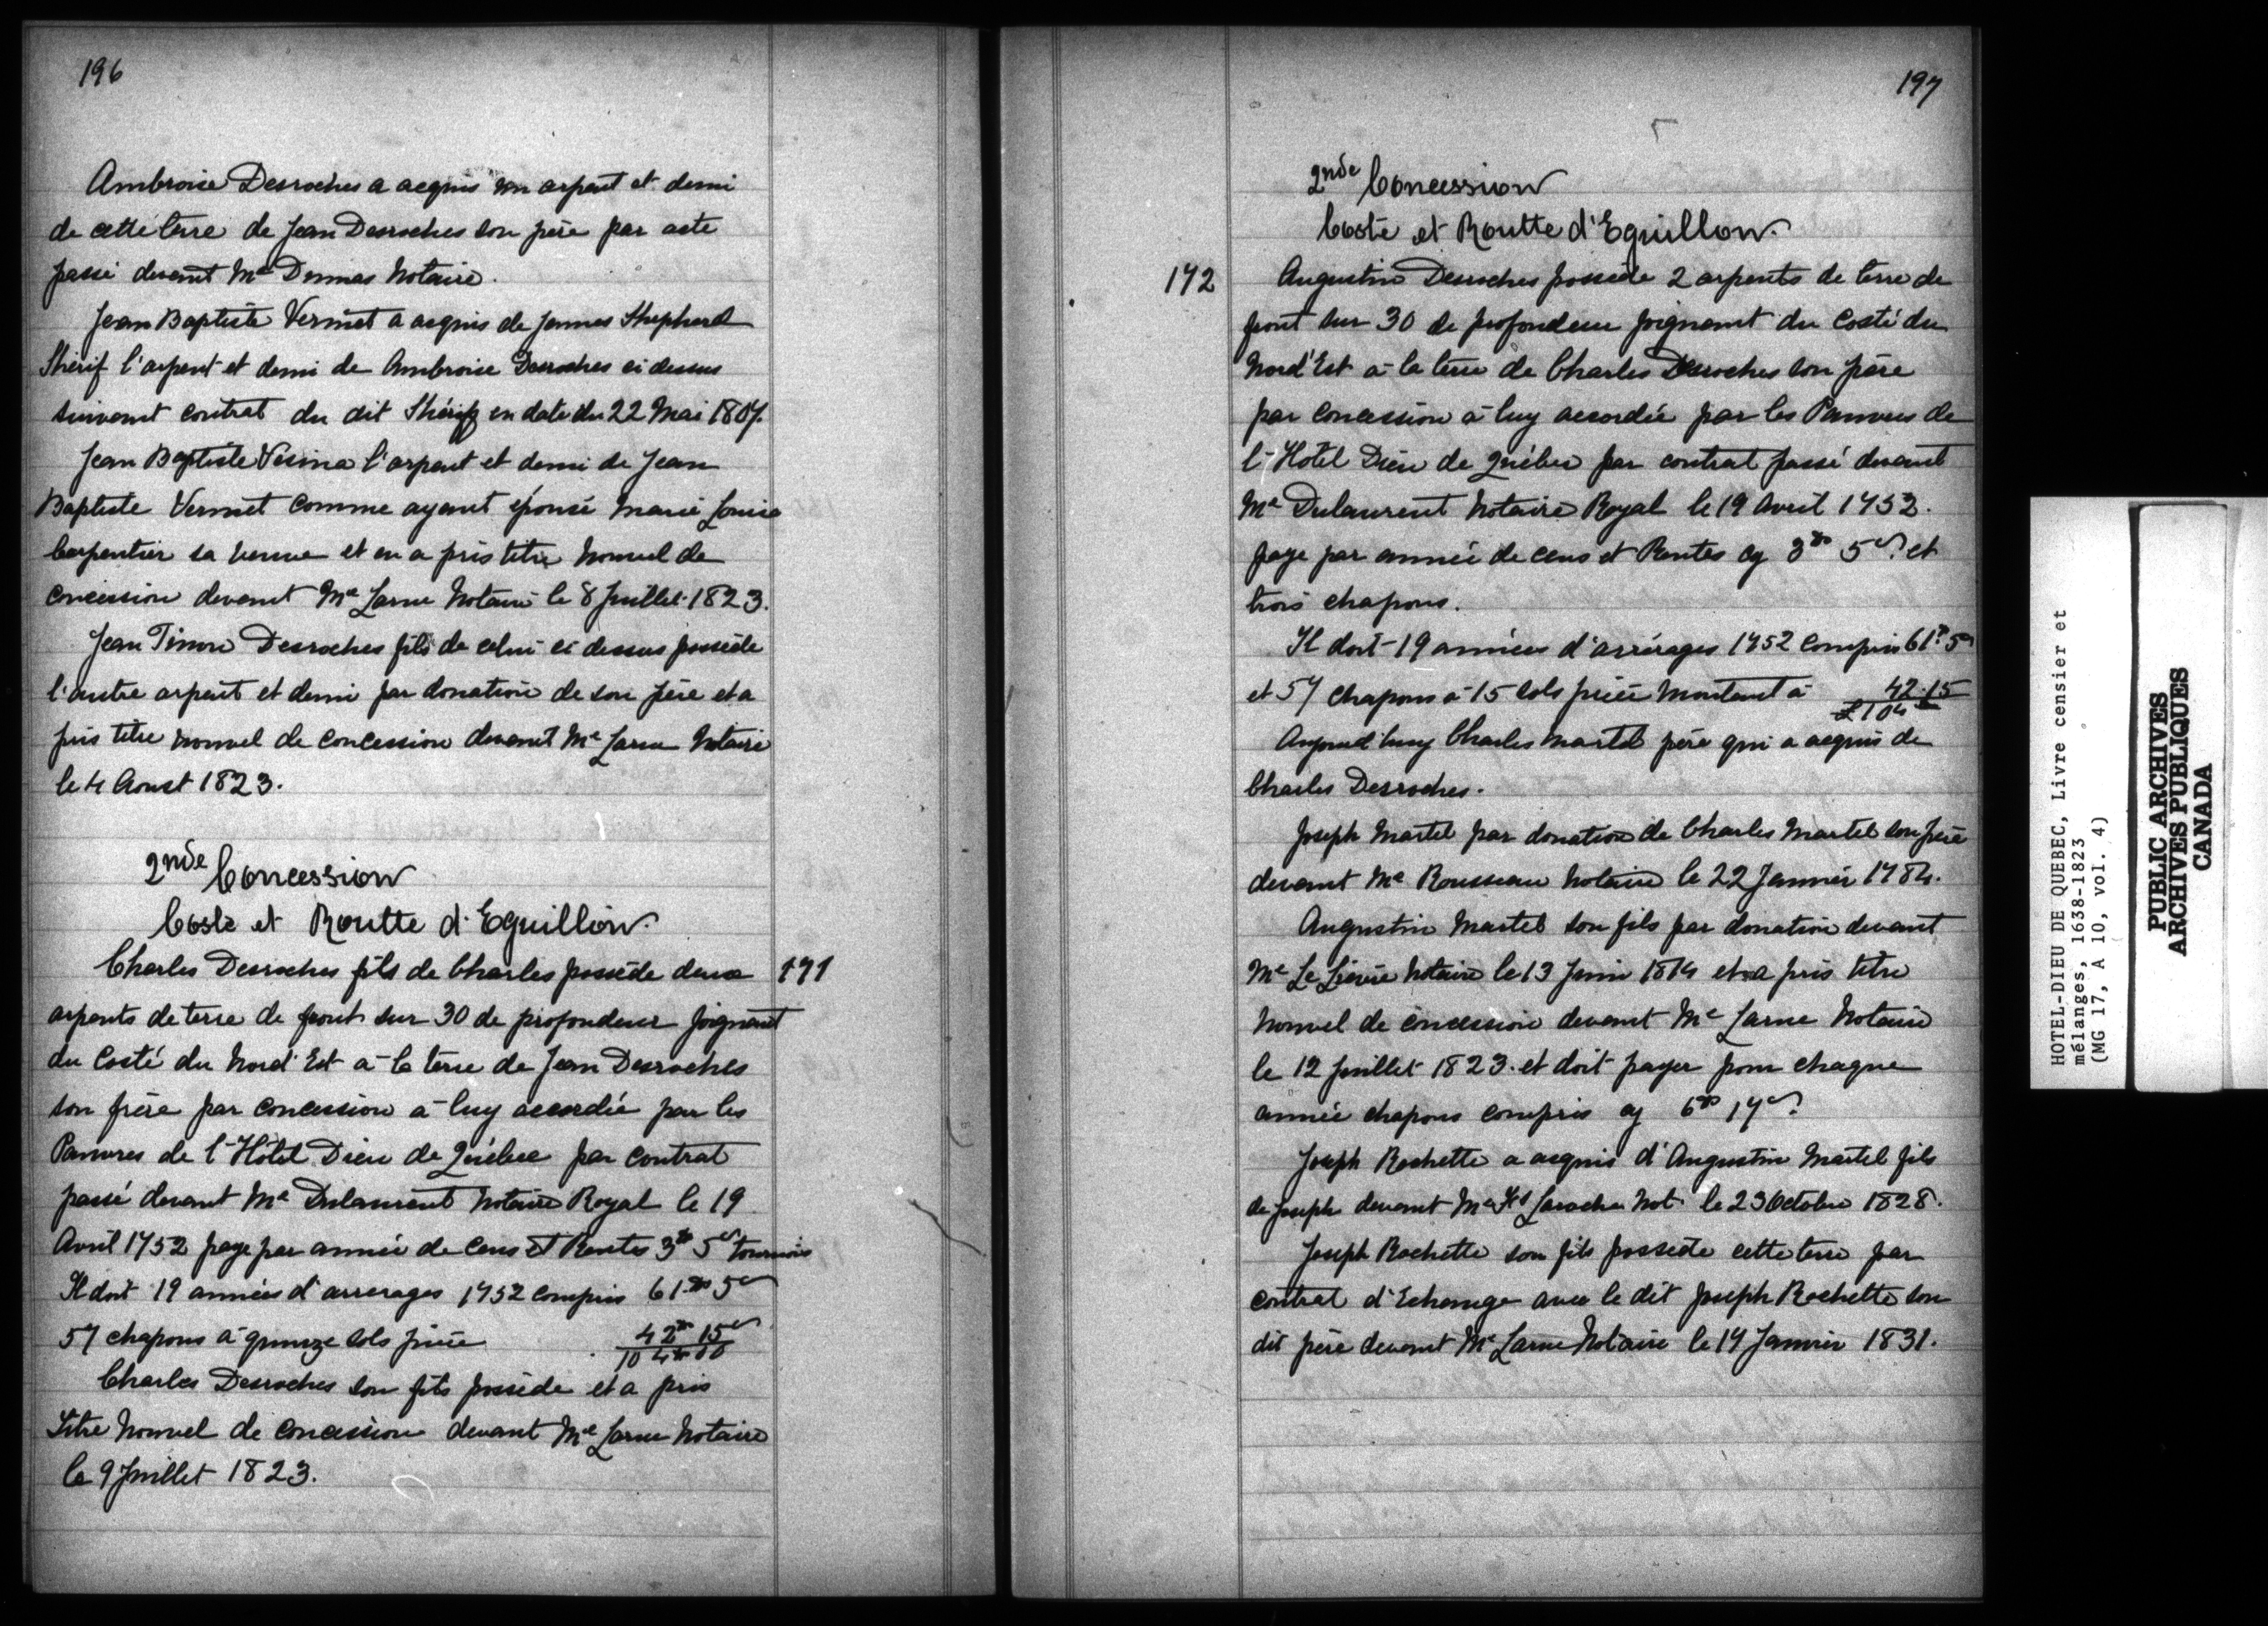 196
Ambroise Desroches a acquis un arpent et demi
de cette terre de Jean Desroches son père par acte
passé devant Me Dumas Notaire.
Jean Baptiste Vermet a acquis de James Shepherd
Shérif l'arpent et demi de Ambroise Desroches ci dessus
suivant contrat du dit Shérif en date du 22 Mai 1807.
Jean Baptiste Vesina l'arpent et demi de Jean
Baptiste Vermet comme ayant épousé Marie Louise
Carpentier sa veuve et en a pris titre nouvel de
concession devant Me Larue Notaire le 8 Juillet 1823.
Jean Timore Desroches fils de celui ci dessus possède
l'autre arpent et demi par donation de son père et a
pris titre nouvel de concession devant Me Larue Notaire
le 4 Aoust 1823.
2nde Concession
Coste et Routte d'Eguillon.
Charles Desroches fils de Charles possède deux 171
arpents de terre de front sur 30 de profondeur joignant
du Costé du Nord Est à la terre de Jean Desroches
son frère par concession à luy accordée par les
Pauvres de l'Hôtel Dieu de Québec par contrat
passé devant Me Dulaurent Notaire Royal le 19
Avril 1752 paye par année de Cens et Rentes 3# 5s tournois
Il doit 19 années d'arrerages 1752 compris 61# 5s
57 chapons à quinze sols pièce 42# 15s
104# 00
Charles Desroches son fils possède et a pris
Titre Nouvel de concession devant Me Larue Notaire
le 9 Juillet 1823.
197
2nde Concession
Coste et Routte d'Eguillon.
172 Augustin Desroches possède 2 arpents de terre de
front sur 30 de profondeur joignant du Costé du
Nord'Est à la terre de Charles Desroches son père
par concession à luy accordée par les Pauvres de
l'Hôtel Dieu de Québec par contrat passé devant
Me Dulaurent Notaire Royal le 19 Avril 1752.
paye par année de cens et Rentes cy 3# 5s et
trois chapons.
Il doit 19 années d'arrérages 1752 compris 61# 5s
et 57 chapons à 15 sols pièce montant à 42.15
£104
Aujourd'huy Charles Martel père qui a acquis de
Charles Desroches.
Joseph Martel par donation de Charles Martel son père
devant Me Rousseau Notaire le 22 Janvier 1784.
Augustin Martel son fils par donation devant
Me Le Lièvre Notaire le 13 Juin 1814 et a pris titre
nouvel de concession devant Me Larue Notaire
le 12 Juillet 1823. et doit payer pour chaque
année chapons compris cy 6# 17s
Joseph Rochette a acquis d'Augustin Martel fils
de Joseph devant Me Fs Laroche Not. le 23 Octobre 1828.
Joseph Rochette son fils possède cette terre par
contrat d'Echange avec le dit Joseph Rochette son
dit père devant Me Larue Notaire le 17 Janvier 1831.
HOTEL-DIEU DE QUEBEC, Livre censier et
mélanges, 1638-1823
(MG 17, A 10, vol. 4)
PUBLIC ARCHIVES
ARCHIVES PUBLIQUES
CANADA